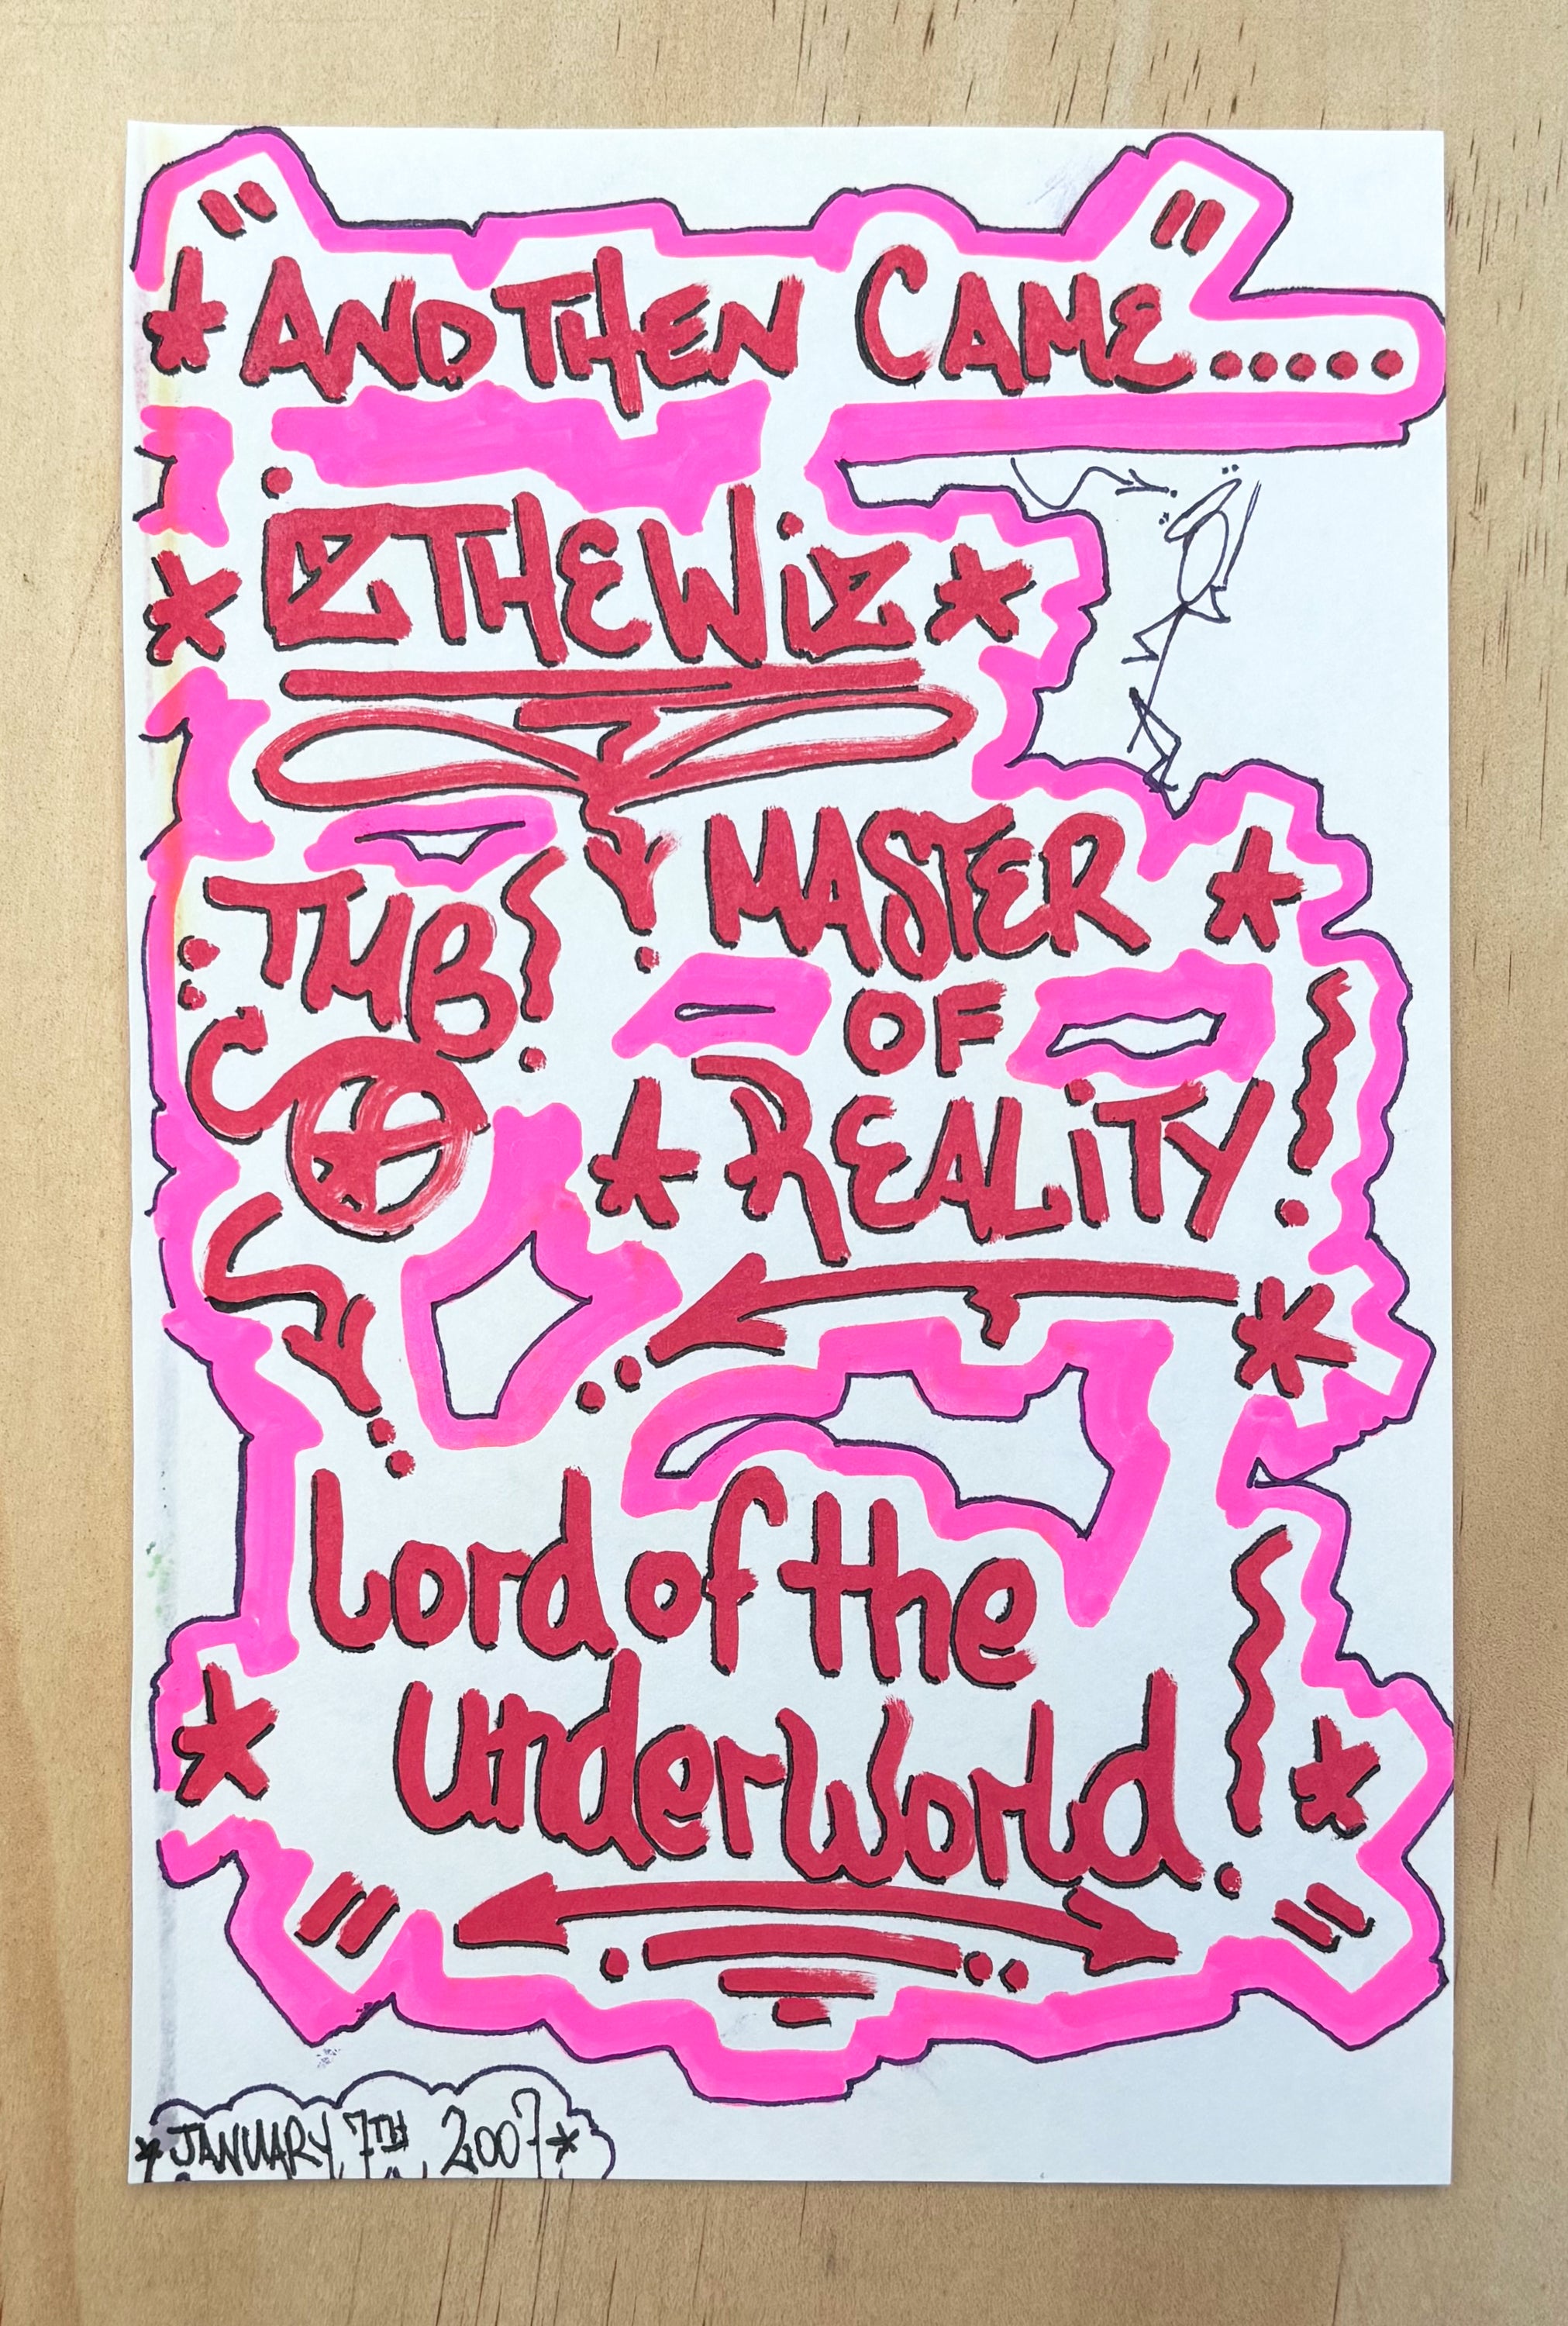 "AND THEN CAME....."
IZ THE WiZ
TMB
MASTER
OF
REALiTY!
Lord of the
underworld.
JANUARY 7TH 2007